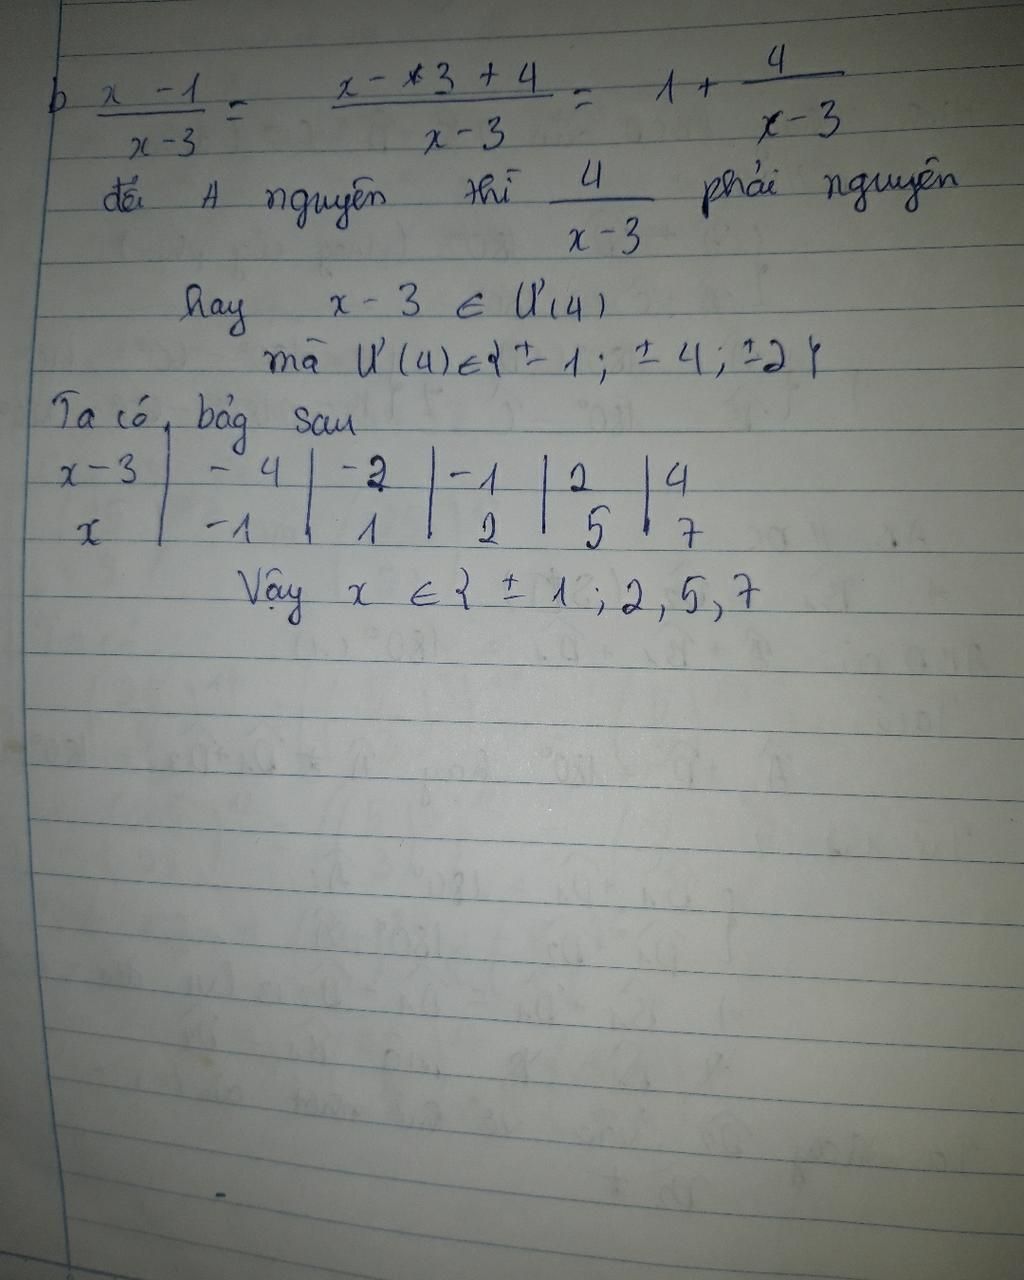 b x - 1 / x - 3 = x - 3 + 4 / x - 3 = 1 + 4 / x - 3
để A nguyên thì 4 / x - 3 phải nguyên
hay x - 3 ∈ Ư(4)
mà Ư(4) ∈ { ± 1 ; ± 4 ; ± 2 }
Ta có, bảg sau
x - 3 | - 4 | - 2 | - 1 | 2 | 4
x | -1 | 1 | 2 | 5 | 7
Vậy x ∈ { ± 1 ; 2, 5, 7